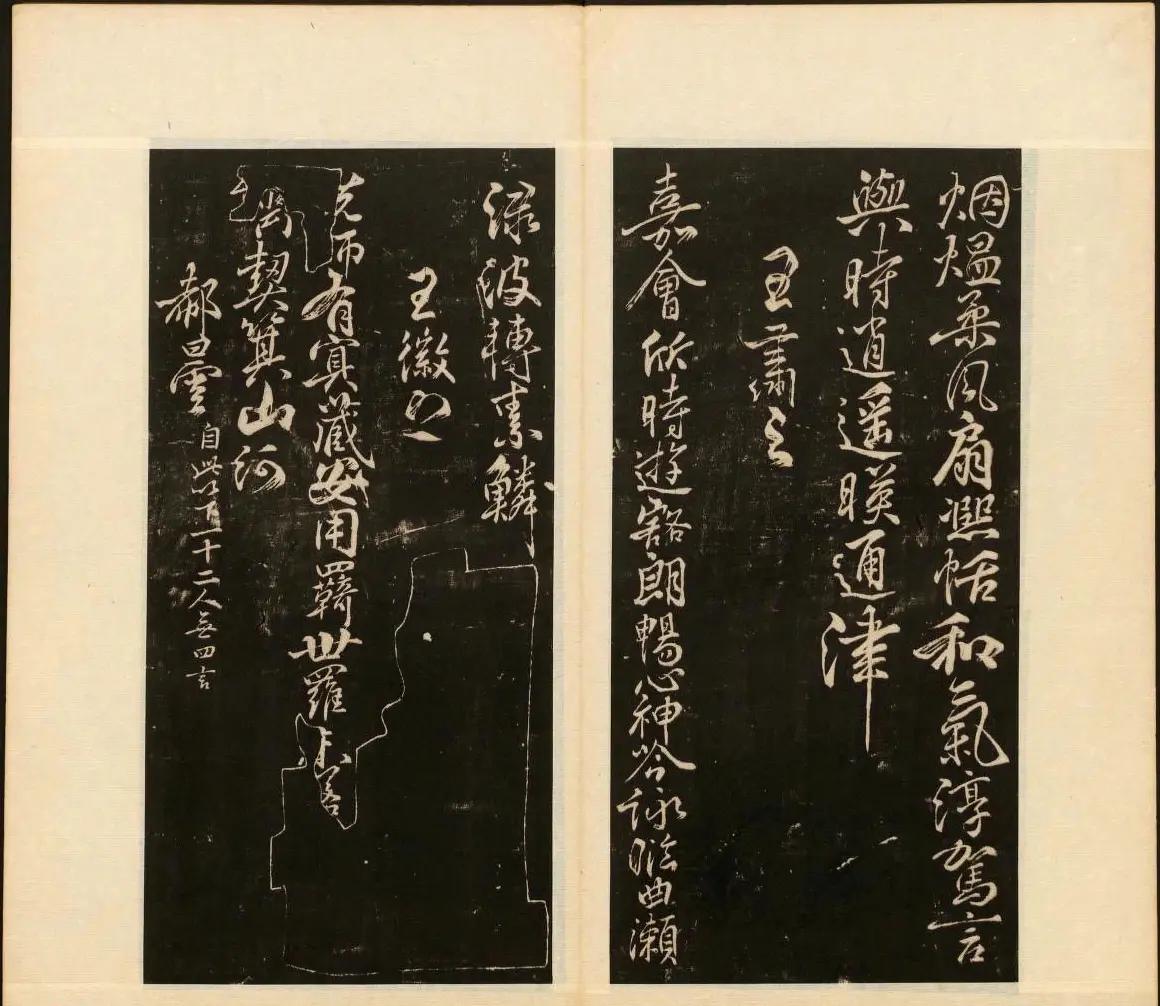 烟煴柔風扇熙恬和氣淳駕言
與時逍遥暎通津
王肅之
嘉會欣時遊豁朗暢心神吟詠臨曲瀨
渌波轉素鱗
王徽之
先師有冥藏安用羇世羅未若
齊契箕山阿
郗曇 自此以下一十二人無四言